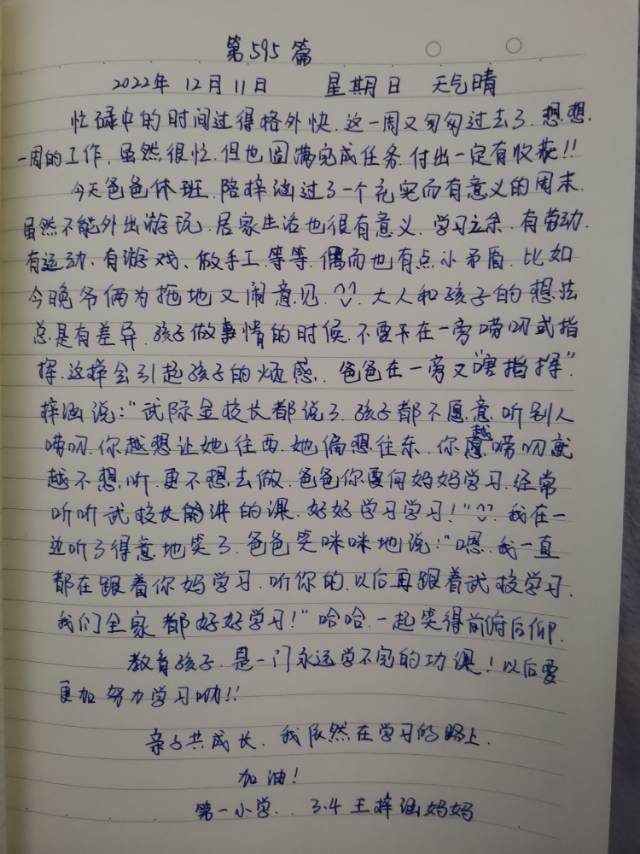 第595篇
2022年12月11日 星期日 天气晴
忙碌中的时间过得格外快.这一周又匆匆过去了.想想.
一周的工作.虽然很忙.但也圆满完成任务.付出一定有收获!!
今天爸爸休班.陪梓涵过了一个充实而有意义的周末.
虽然不能外出游玩.居家生活也很有意义.学习之余.有劳动.
有运动、有游戏、做手工.等等.偶而也有点小矛盾.比如
今晚爷俩为拖地又闹意见.大人和孩子的想法
总是有差异.孩子做事情的时候.不要在一旁唠叨式指
挥.这样会引起孩子的烦感.爸爸在一旁又"瞎指挥".
梓涵说:"武际金校长都说了.孩子都不愿意听别人
唠叨.你越想让她往西.她偏想往东.你越唠叨就
越不想听.更不想去做.爸爸你要向妈妈学习.经常
听听武校长讲的课.好好学习学习!"我在一
边听了得意地笑了.爸爸笑咪咪地说:"嗯.我一直
都在跟着你妈学习.听你的.以后再跟着武校学习.
我们全家都好好学习!"哈哈.一起笑得前俯后仰.
教育孩子.是一门永远学不完的功课!以后要
更加努力学习呦!!
亲子共成长.我依然在学习的路上.
加油!
第一小学.3.4王梓涵妈妈